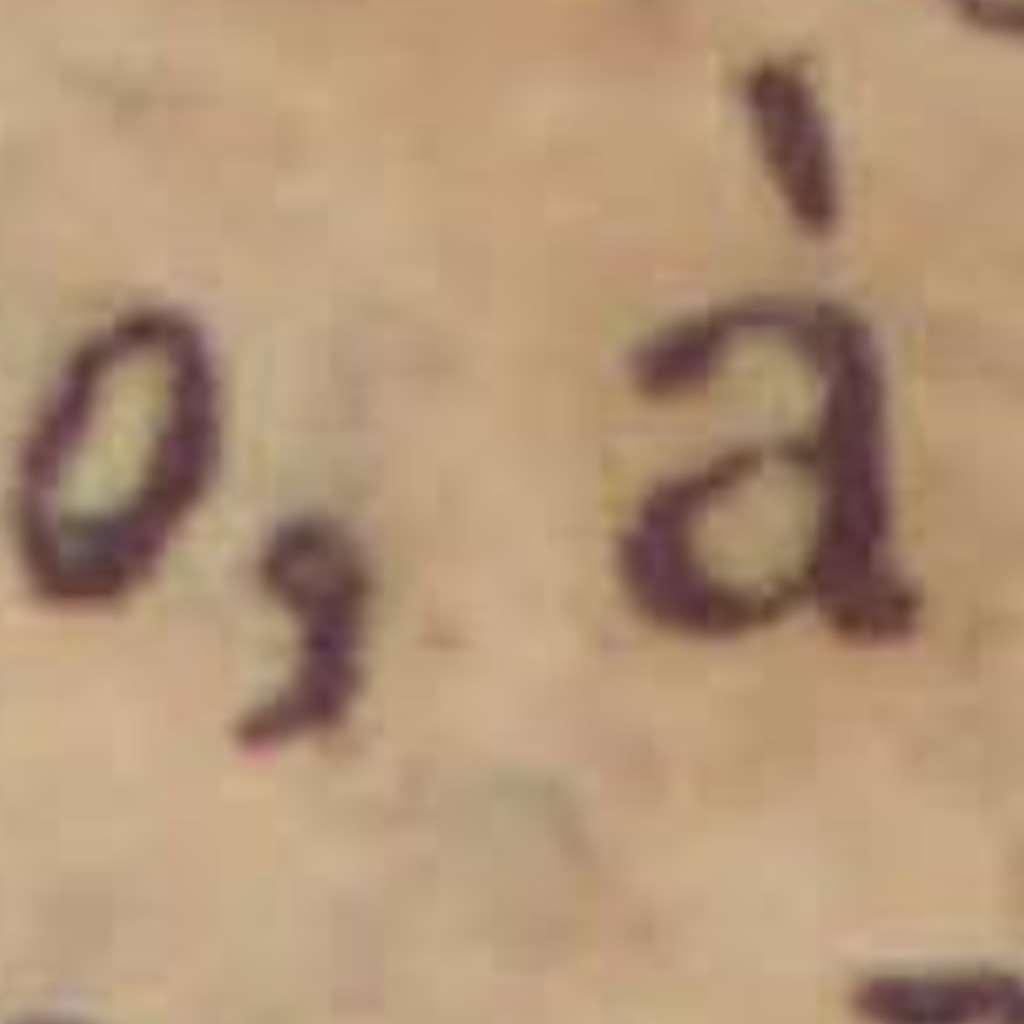 o, à